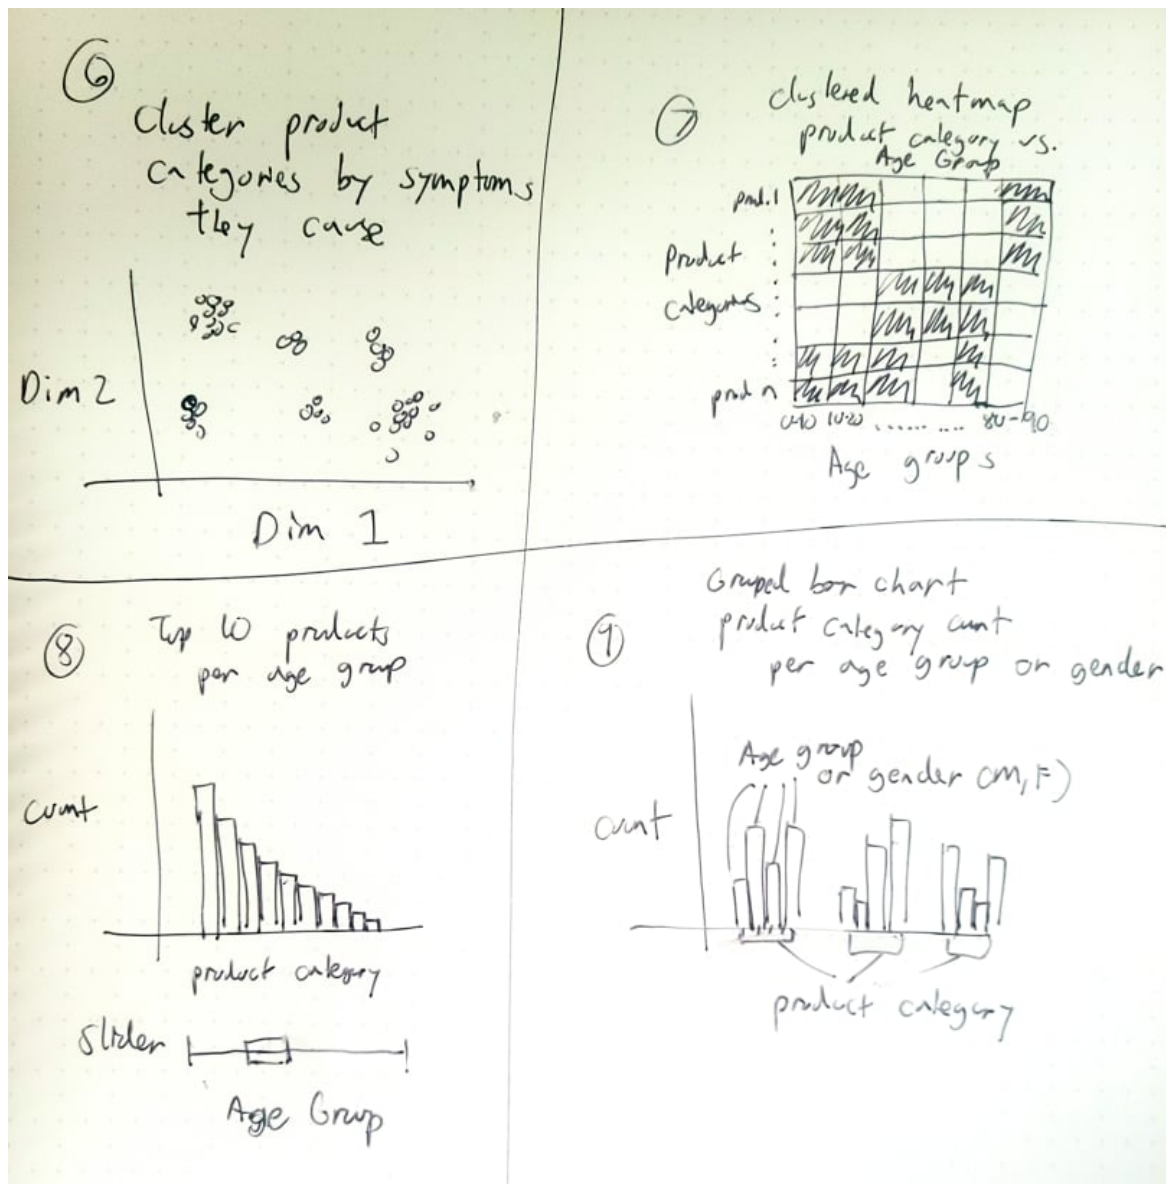 6
Cluster product
categories by symptoms
they cause
Dim 2
Dim 1
7
clustered heatmap
product category vs.
Age Group
prod. 1
Product
categories
prod n
0-10 10-20 ...... .... 80-90
Age groups
8
Top 10 products
per age group
count
product category
slider
Age Group
9
Grouped bar chart
product category count
per age group or gender
Age group
or gender (M, F)
count
product category